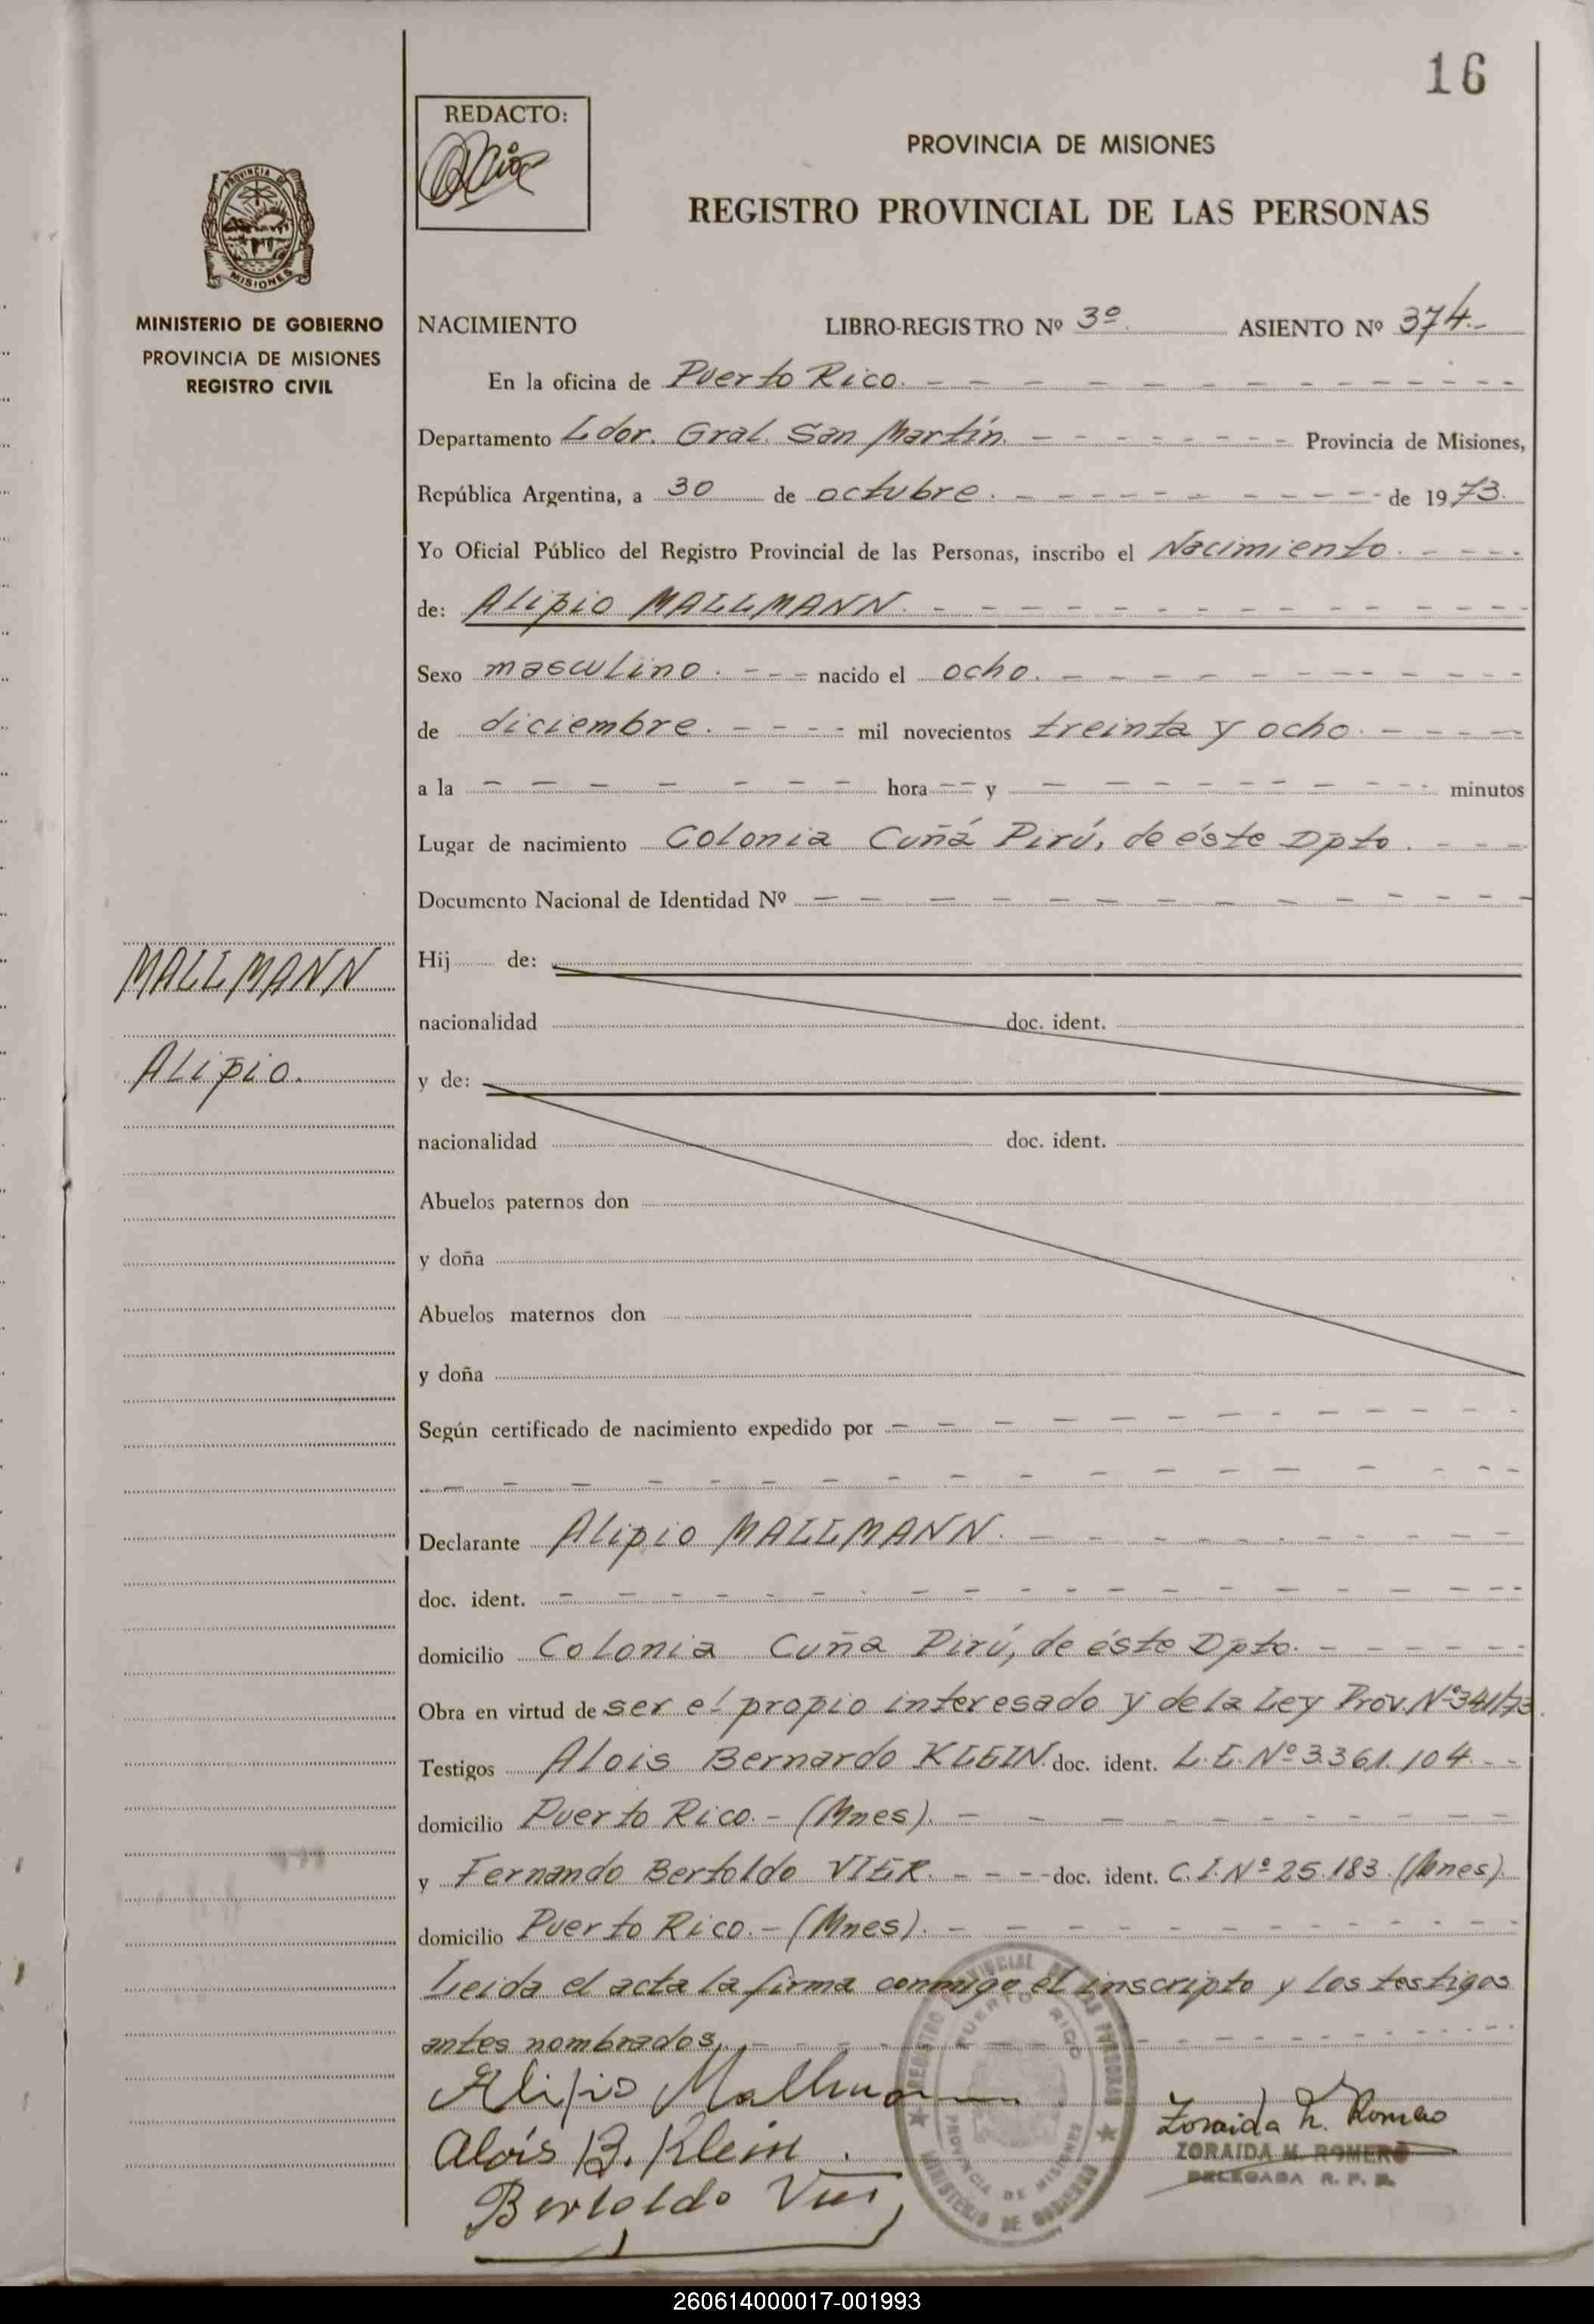 16
REDACTO:
PROVINCIA DE MISIONES
REGISTRO PROVINCIAL DE LAS PERSONAS
MINISTERIO DE GOBIERNO
PROVINCIA DE MISIONES
REGISTRO CIVIL
NACIMIENTO LIBRO-REGISTRO Nº 3º. ASIENTO Nº 374.-
En la oficina de Puerto Rico.
Departamento Ldor. Gral. San Martín. Provincia de Misiones,
República Argentina, a 30 de octubre. de 1973.
Yo Oficial Público del Registro Provincial de las Personas, inscribo el Nacimiento.
de: Alipio MALLMANN.
Sexo masculino. nacido el ocho.
de diciembre. mil novecientos treinta y ocho.
a la hora y minutos
Lugar de nacimiento Colonia Cuñá Pirú, de éste Dpto.
Documento Nacional de Identidad Nº
MALLMANN
Alipio.
Hij de:
nacionalidad doc. ident.
y de:
nacionalidad doc. ident.
Abuelos paternos don
y doña
Abuelos maternos don
y doña
Según certificado de nacimiento expedido por
Declarante Alipio MALLMANN.
doc. ident.
domicilio Colonia Cuña Pirú, de éste Dpto.
Obra en virtud de ser el propio interesado y de la Ley Prov. Nº 341/73.
Testigos Alois Bernardo KLEIN. doc. ident. L.E. Nº 3.361.104.
domicilio Puerto Rico.- (Mnes).
y Fernando Bertoldo VIER. doc. ident. C.I. Nº 25.183. (Mnes).
domicilio Puerto Rico.- (Mnes).
Leida el acta la firma conmigo el inscripto y los testigos
antes nombrados.
Alipio Mallmann
Aloís B. Klein.
Bertoldo Vier
REGISTRO PROVINCIAL DE LAS PERSONAS
PUERTO RICO
PROVINCIA DE MISIONES
MINISTERIO DE GOBIERNO
Zoraida M. Romero
ZORAIDA M. ROMERO
DELEGADA R. P. P.
MISIONES
260614000017-001993